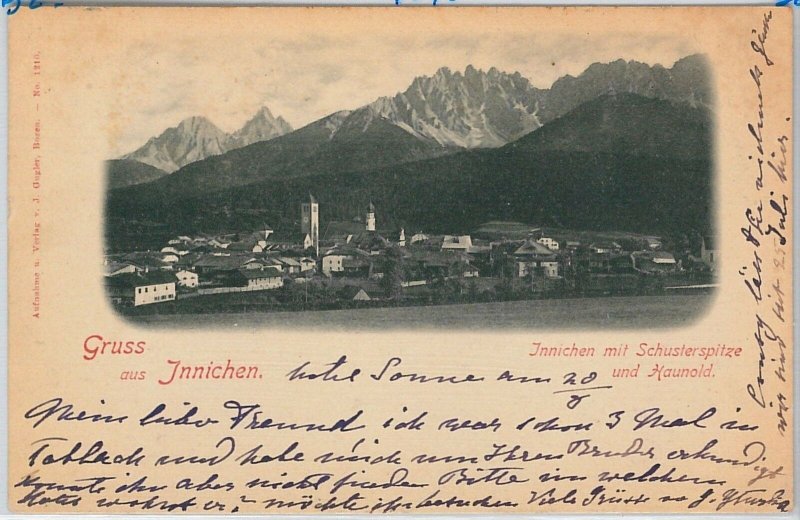 Aufnahme u. Verlag v. J. Gugler, Bozen. — No. 1210.
Gruss
aus Innichen.
Innichen mit Schusterspitze
und Haunold.
hotel Sonne am 28/8
Mein liber Freund ich war schon 3 Mal in
Toblach und habe mich um Ihren Bruder erkundigt
konnte ihn aber nicht finden Bitte in welchem
Hotel wohnt er? möchte ihn besuchen Viele Grüsse v. J.
lässt Sie vielmals
wir sind seit Juli hier.